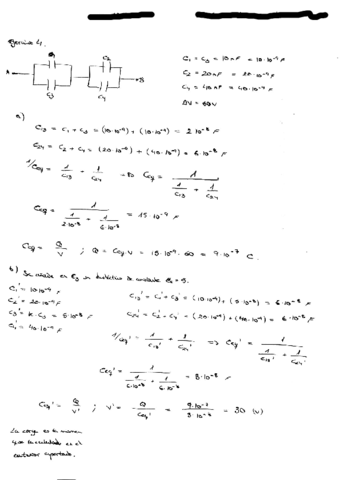 Ejercicio 4.
C₁
C₂
A
B
C₃
C₄
C₁ = C₃ = 10 nF = 10·10⁻⁹ F
C₂ = 20 nF = 20·10⁻⁹ F
C₄ = 40 nF = 40·10⁻⁹ F
ΔV = 60V
a)
C₁₃ = C₁ + C₃ = (10·10⁻⁹) + (10·10⁻⁹) = 2·10⁻⁸ F
C₂₄ = C₂ + C₄ = (20·10⁻⁹) + (40·10⁻⁹) = 6·10⁻⁸ F
1/Ceq = 1/C₁₃ + 1/C₂₄ → Ceq = 1/(1/C₁₃ + 1/C₂₄)
Ceq = 1/(1/2·10⁻⁸ + 1/6·10⁻⁸) = 15·10⁻⁹ F
Ceq = Q/V ; Q = Ceq·V = 15·10⁻⁹·60 = 9·10⁻⁷ C.
b) Se añade en C₃ un dieléctrico de constante = 5.
C₁' = 10·10⁻⁹ F
C₂' = 20·10⁻⁹ F
C₃' = K·C₃ = 5·10⁻⁸ F
C₄' = 40·10⁻⁹ F
C₁₃' = C₁' + C₃' = (10·10⁻⁹) + (5·10⁻⁸) = 6·10⁻⁸ F
C₂₄' = C₂' + C₄' = (20·10⁻⁹) + (40·10⁻⁹) = 6·10⁻⁸ F
1/Ceq' = 1/C₁₃' + 1/C₂₄' ⇒ Ceq' = 1/(1/C₁₃' + 1/C₂₄')
Ceq' = 1/(1/6·10⁻⁸ + 1/6·10⁻⁸) = 3·10⁻⁸ F
Ceq' = Q/V' ; V' = Q/Ceq' = 9·10⁻⁷/3·10⁻⁸ = 30 (V)
La carga es la misma
que la calculada en el
anterior apartado.